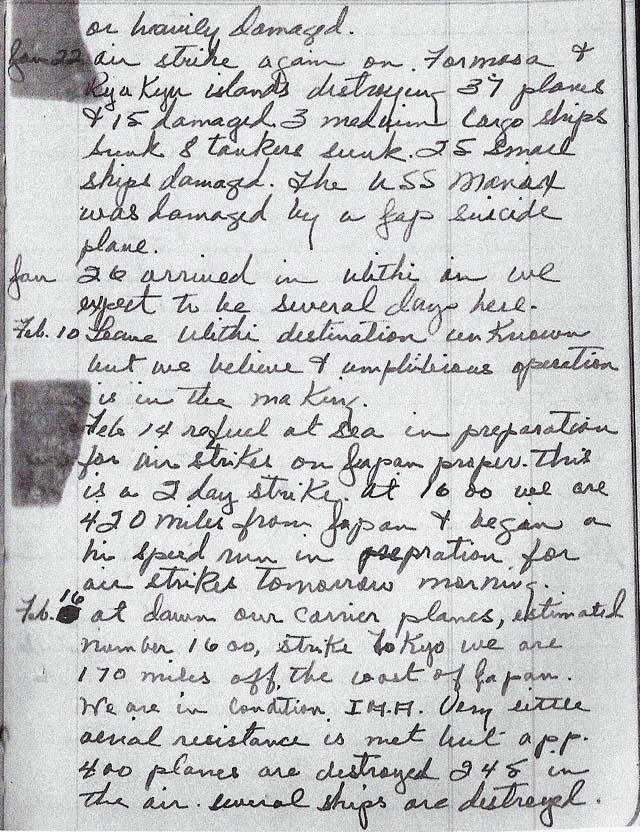 or heavily damaged.
Jan 22 air strike again on Formosa &
Kyu Kyu islands destroying 37 planes
& 15 damaged. 3 medium cargo ships
sunk 8 tankers sunk. 25 small
ships damaged. The USS
was damaged by a Jap suicide
plane.
Jan 26 arrived in Ulithi an we
expect to be several days here.
Feb. 10 Leave Ulithi destination unknown
but we believe & amphibious operation
is in the making.
Feb 14 refuel at sea in preparation
for air strikes on Japan proper. This
is a 2 day strike. at 1600 we are
420 miles from Japan & began a
hi speed run in prepration for
air strikes tomorrow morning.
Feb. 16 at dawn our carrier planes, estimated
number 1600, strike Tokyo we are
170 miles off the coast of Japan.
We are in Condition Very little
aerial resistance is met but app.
400 planes are destroyed 245 in
the air. several ships are destroyed.